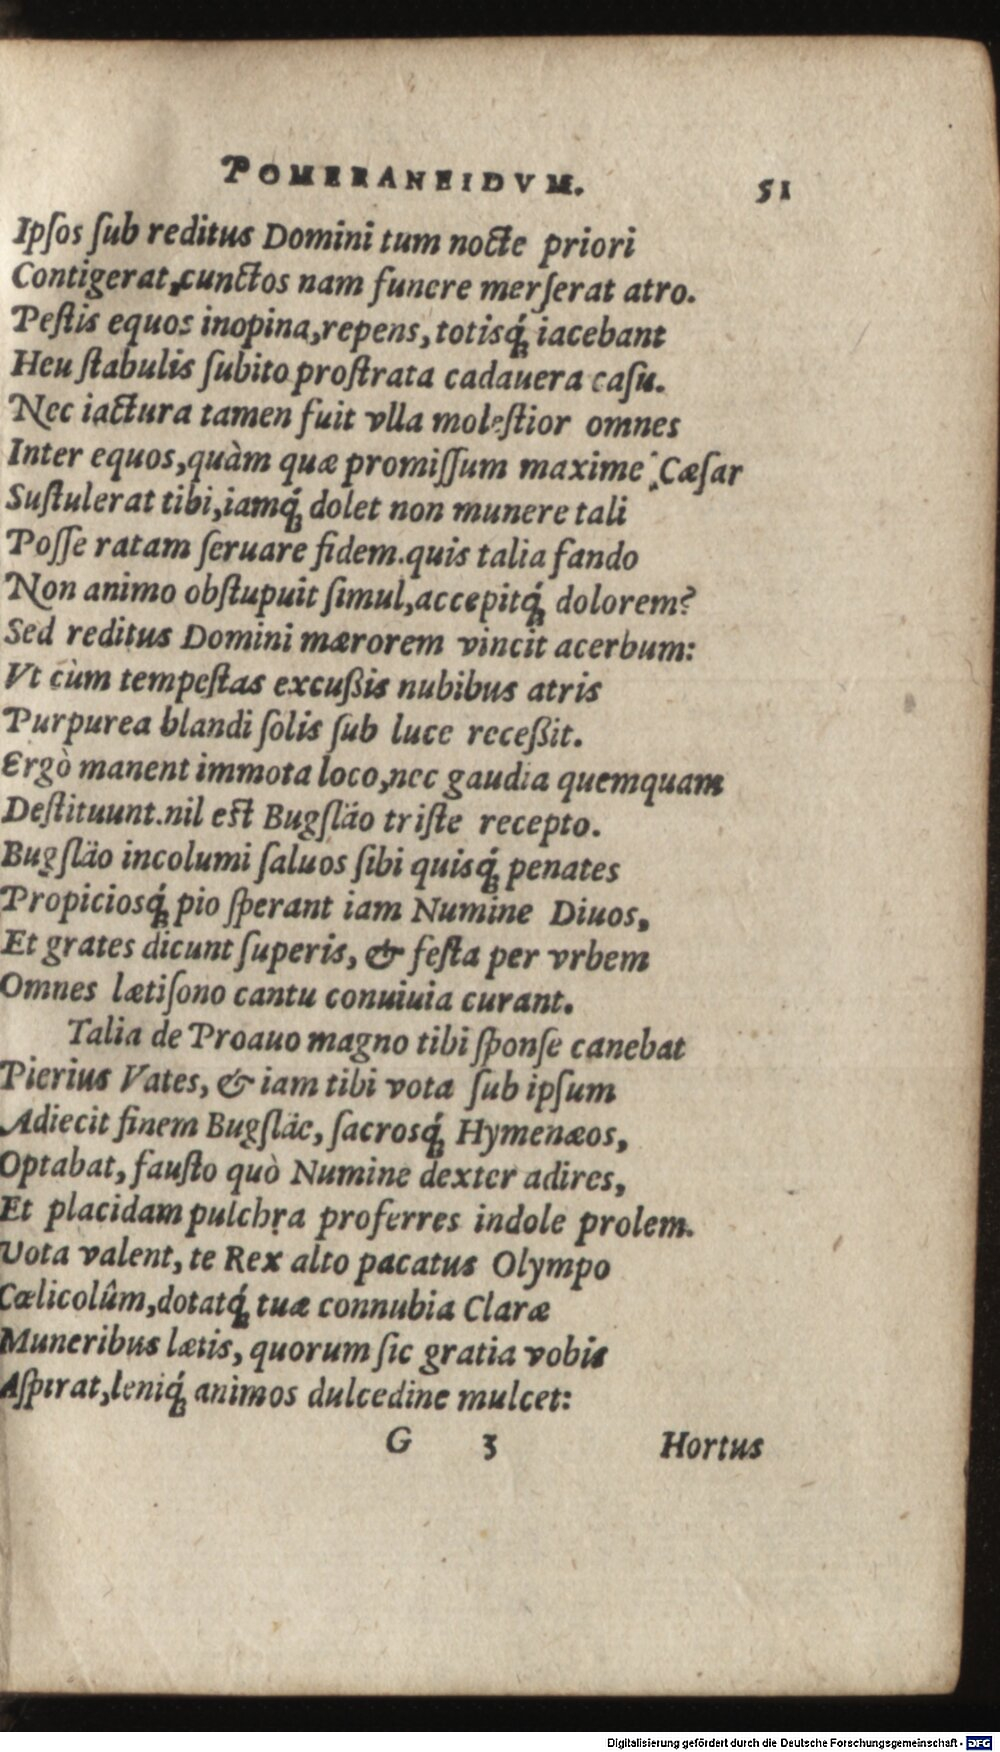 POMERANEIDVM. 51
Ipſos ſub reditus Domini tum nocte priori
Contigerat, cunctos nam funere merſerat atro.
Peſtis equos inopina, repens, totisq́ꝫ iacebant
Heu ſtabulis ſubito proſtrata cadauera caſu.
Nec iactura tamen fuit vlla moleſtior omnes
Inter equos, quàm quæ promiſſum maxime Cæſar
Suſtulerat tibi, iamq́ꝫ dolet non munere tali
Poſſe ratam ſeruare fidem. quis talia fando
Non animo obſtupuit ſimul, accepitq́ꝫ dolorem?
Sed reditus Domini mærorem vincit acerbum:
Vt cùm tempeſtas excußis nubibus atris
Purpurea blandi ſolis ſub luce receßit.
Ergò manent immota loco, nec gaudia quemquam
Deſtituunt. nil eſt Bugſläo triſte recepto.
Bugſläo incolumi ſaluos ſibi quisq́ꝫ penates
Propiciosq́ꝫ pio ſperant iam Numine Diuos,
Et grates dicunt ſuperis, & feſta per vrbem
Omnes lætiſono cantu conuiuia curant.
Talia de Proauo magno tibi ſponſe canebat
Pierius Vates, & iam tibi vota ſub ipſum
Adiecit finem Bugſläe, ſacrosq́ꝫ Hymenæos,
Optabat, fauſto quò Numine dexter adires,
Et placidam pulchra proferres indole prolem.
Vota valent, te Rex alto pacatus Olympo
Cœlicolûm, dotatq́ꝫ tuæ connubia Claræ
Muneribus lætis, quorum ſic gratia vobis
Aſpirat, leniq́ꝫ animos dulcedine mulcet:
G 3 Hortus
Digitalisierung gefördert durch die Deutsche Forschungsgemeinschaft - DFG